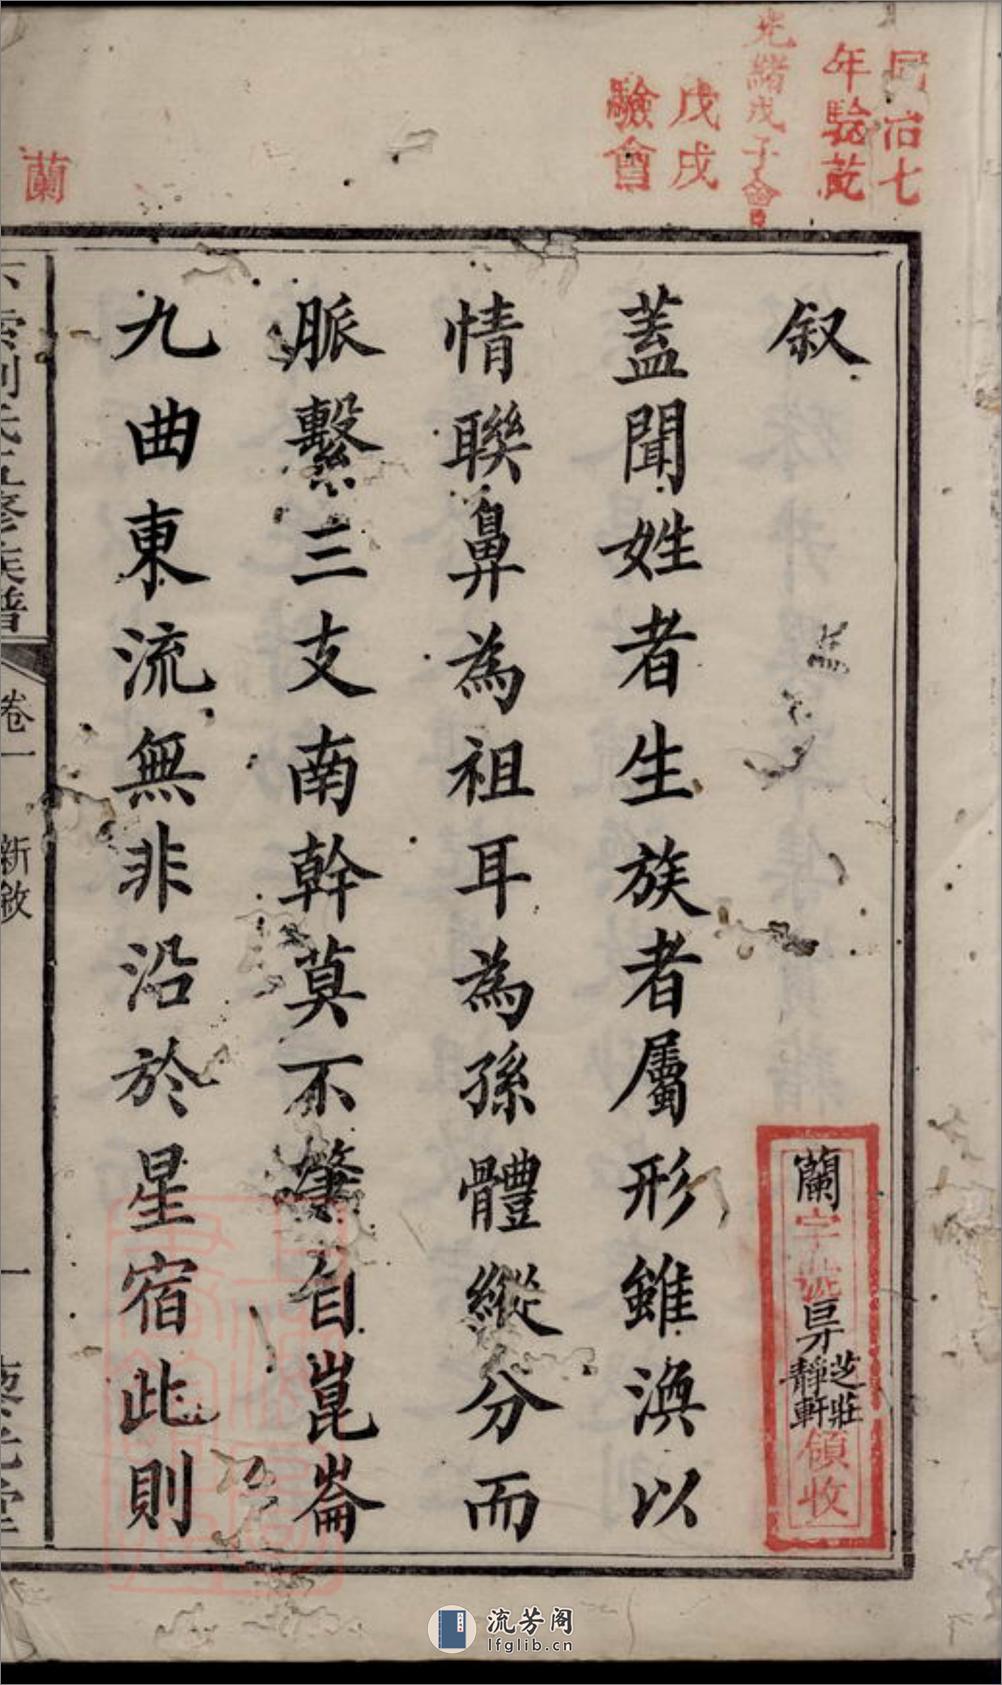 同治七
年驗訖
光緒戊子會
戊戌
驗會
蘭
叙
蓋聞姓者生族者屬形雖渙以
情聯鼻為祖耳為孫體縱分而
脈繫三支南幹莫不肇自崑崙
九曲東流無非沿於星宿此則
蘭字號
芝莊
靜軒
領收
氏五修族譜
卷一
新敘
一
流芳阁
lfglib.cn